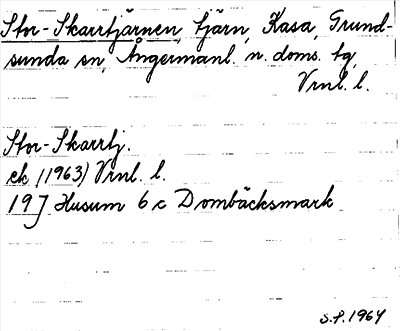 Stor-Skarrtjärnen, tjärn, Kasa, Grund-
sunda sn, Ångermanl. n. doms. tg,
Vrnl. l.
Stor-Skarrtj.
ek (1963) Vrnl. l.
19J Husum 6 c Dombäcksmark
S.F. 1964